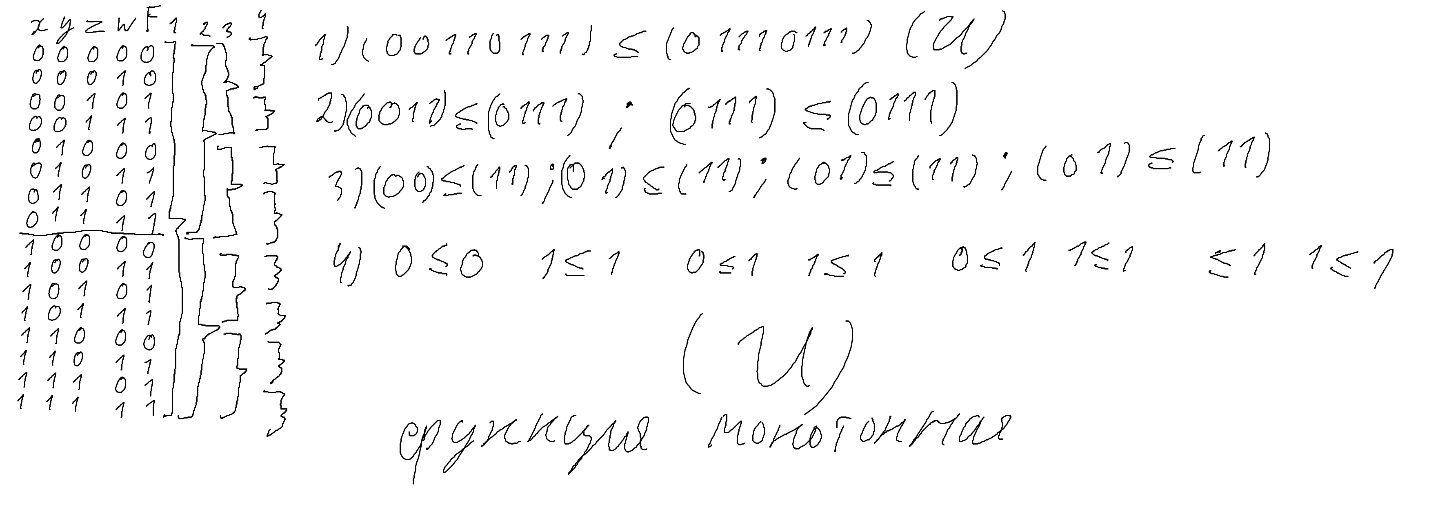 x y z w F 1 2 3 4
0 0 0 0 0
0 0 0 1 0
0 0 1 0 1
0 0 1 1 1
0 1 0 0 0
0 1 0 1 1
0 1 1 0 1
0 1 1 1 1
1 0 0 0 0
1 0 0 1 1
1 0 1 0 1
1 0 1 1 1
1 1 0 0 0
1 1 0 1 1
1 1 1 0 1
1 1 1 1 1
1) (00110111) ≤ (01110111) (И)
2) (0011) ≤ (0111) ; (0111) ≤ (0111)
3) (00) ≤ (11) ; (01) ≤ (11) ; (01) ≤ (11) ; (01) ≤ (11)
4) 0 ≤ 0 1 ≤ 1 0 ≤ 1 1 ≤ 1 0 ≤ 1 1 ≤ 1 ≤ 1 1 ≤ 1
(И)
функция монотонная